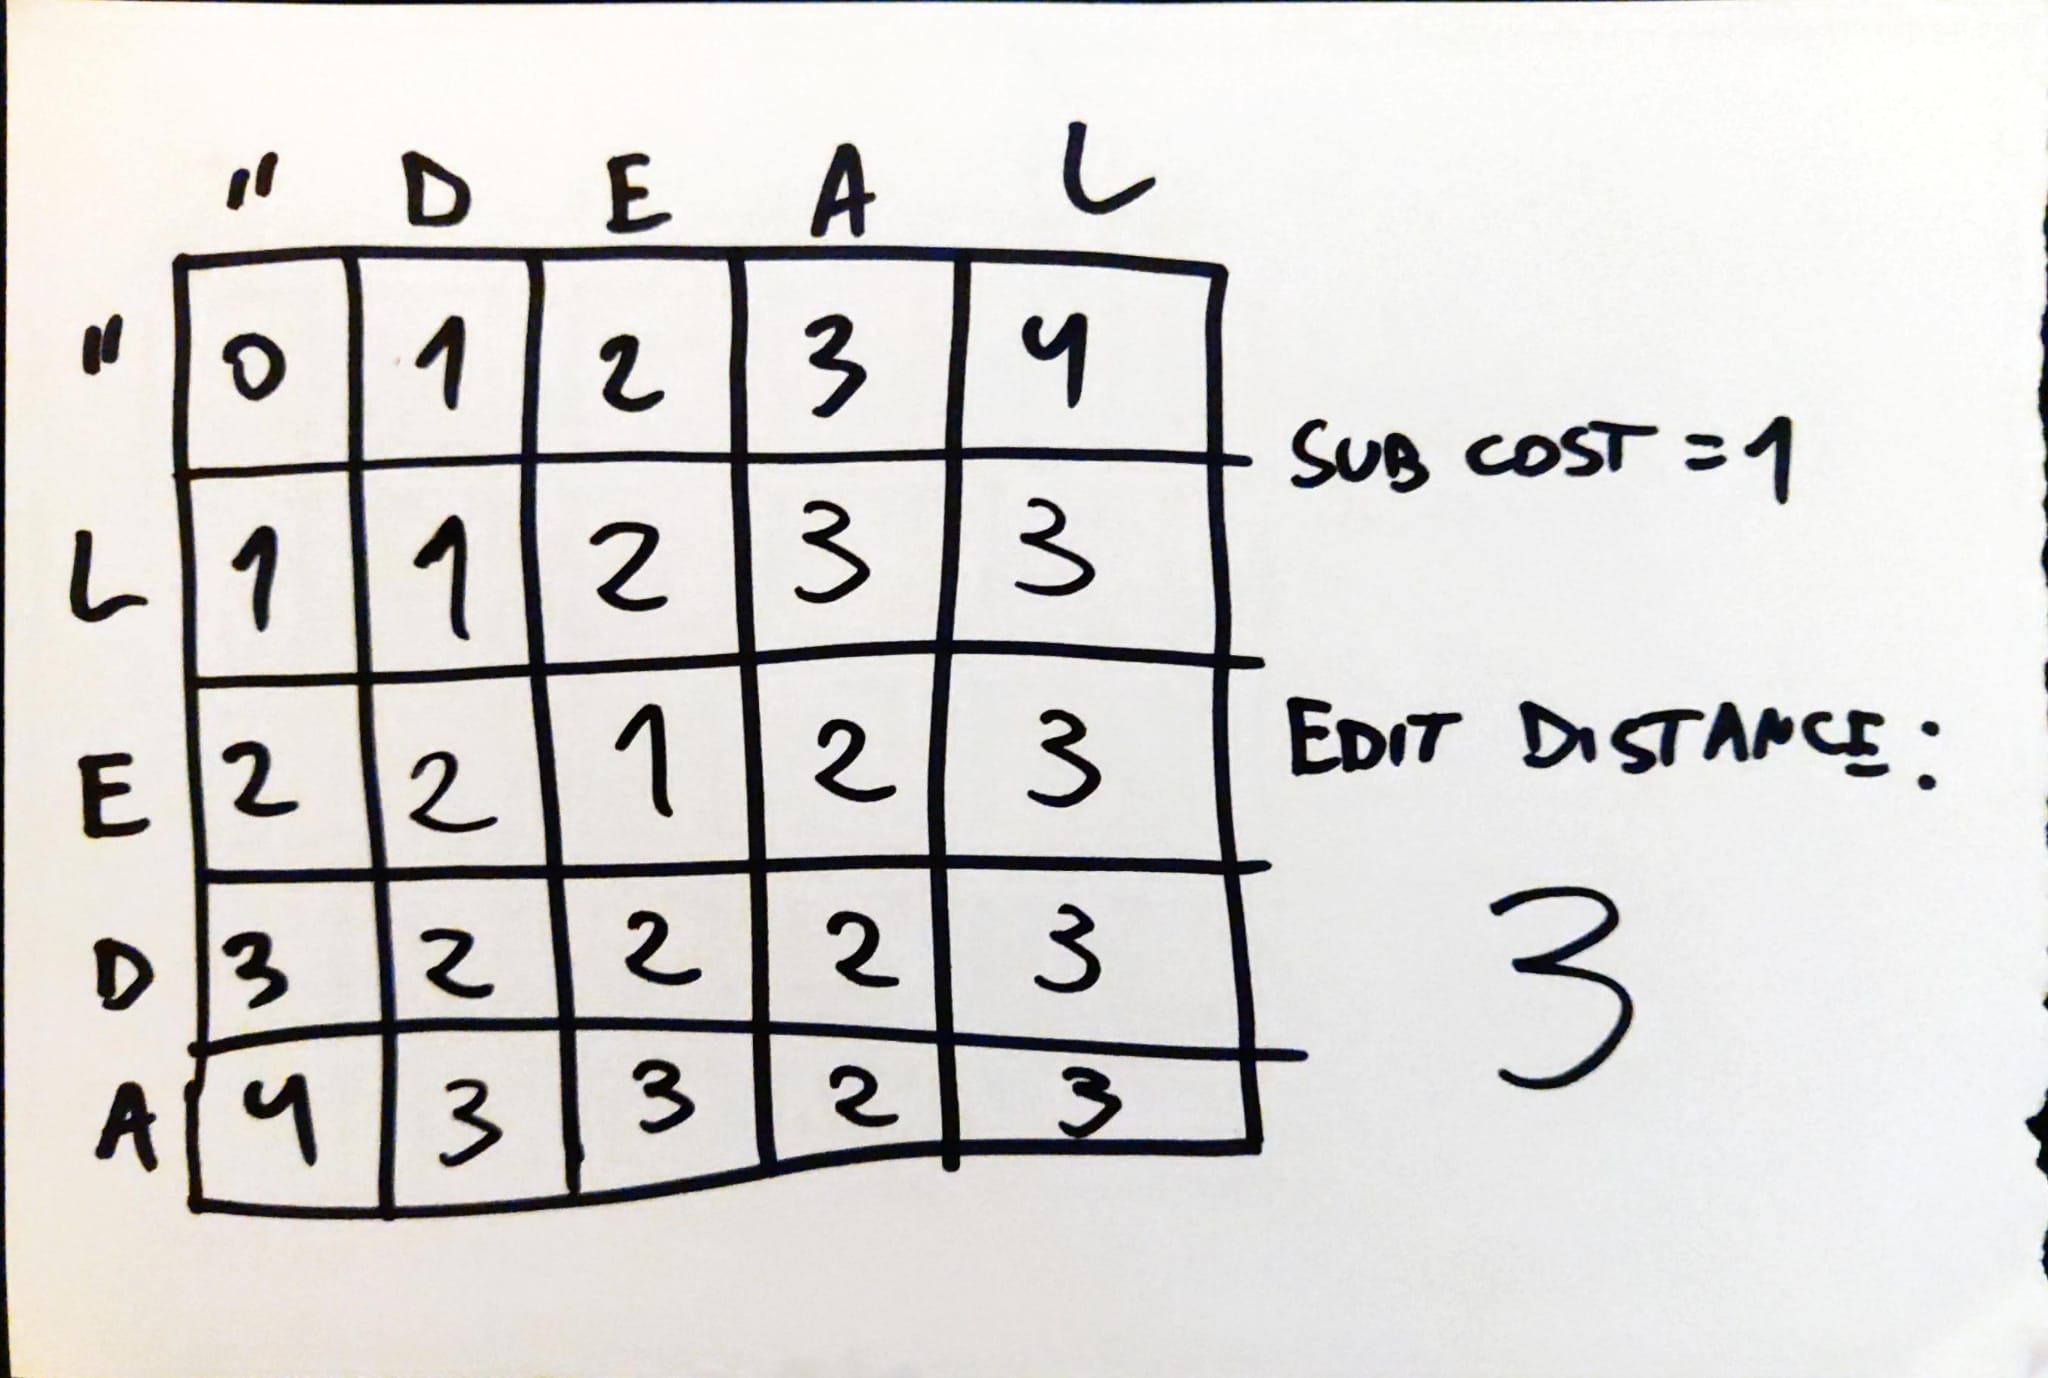 " D E A L
" 0 1 2 3 4
L 1 1 2 3 3
E 2 2 1 2 3
D 3 2 2 2 3
A 4 3 3 2 3
SUB COST = 1
EDIT DISTANCE:
3